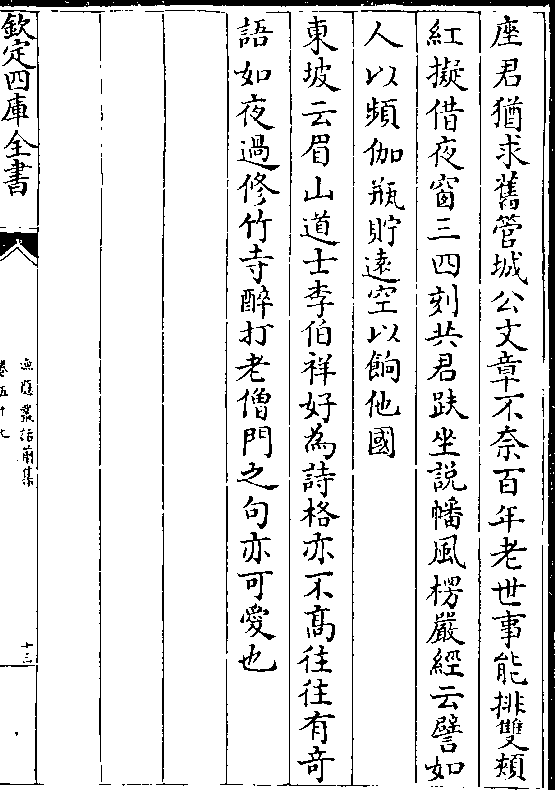 座君猶求舊管城公文章不奈百年老世事能排雙頰
紅擬借夜窗三四刻共君趺坐説幡風楞嚴經云譬如
人以頻伽瓶貯遠空以餉他國
東坡云眉山道士李伯祥好為詩格亦不髙往往有竒
語如夜過修竹寺醉打老僧門之句亦可愛也
欽定四庫全書
漁隠叢話前集
卷五十七
十三